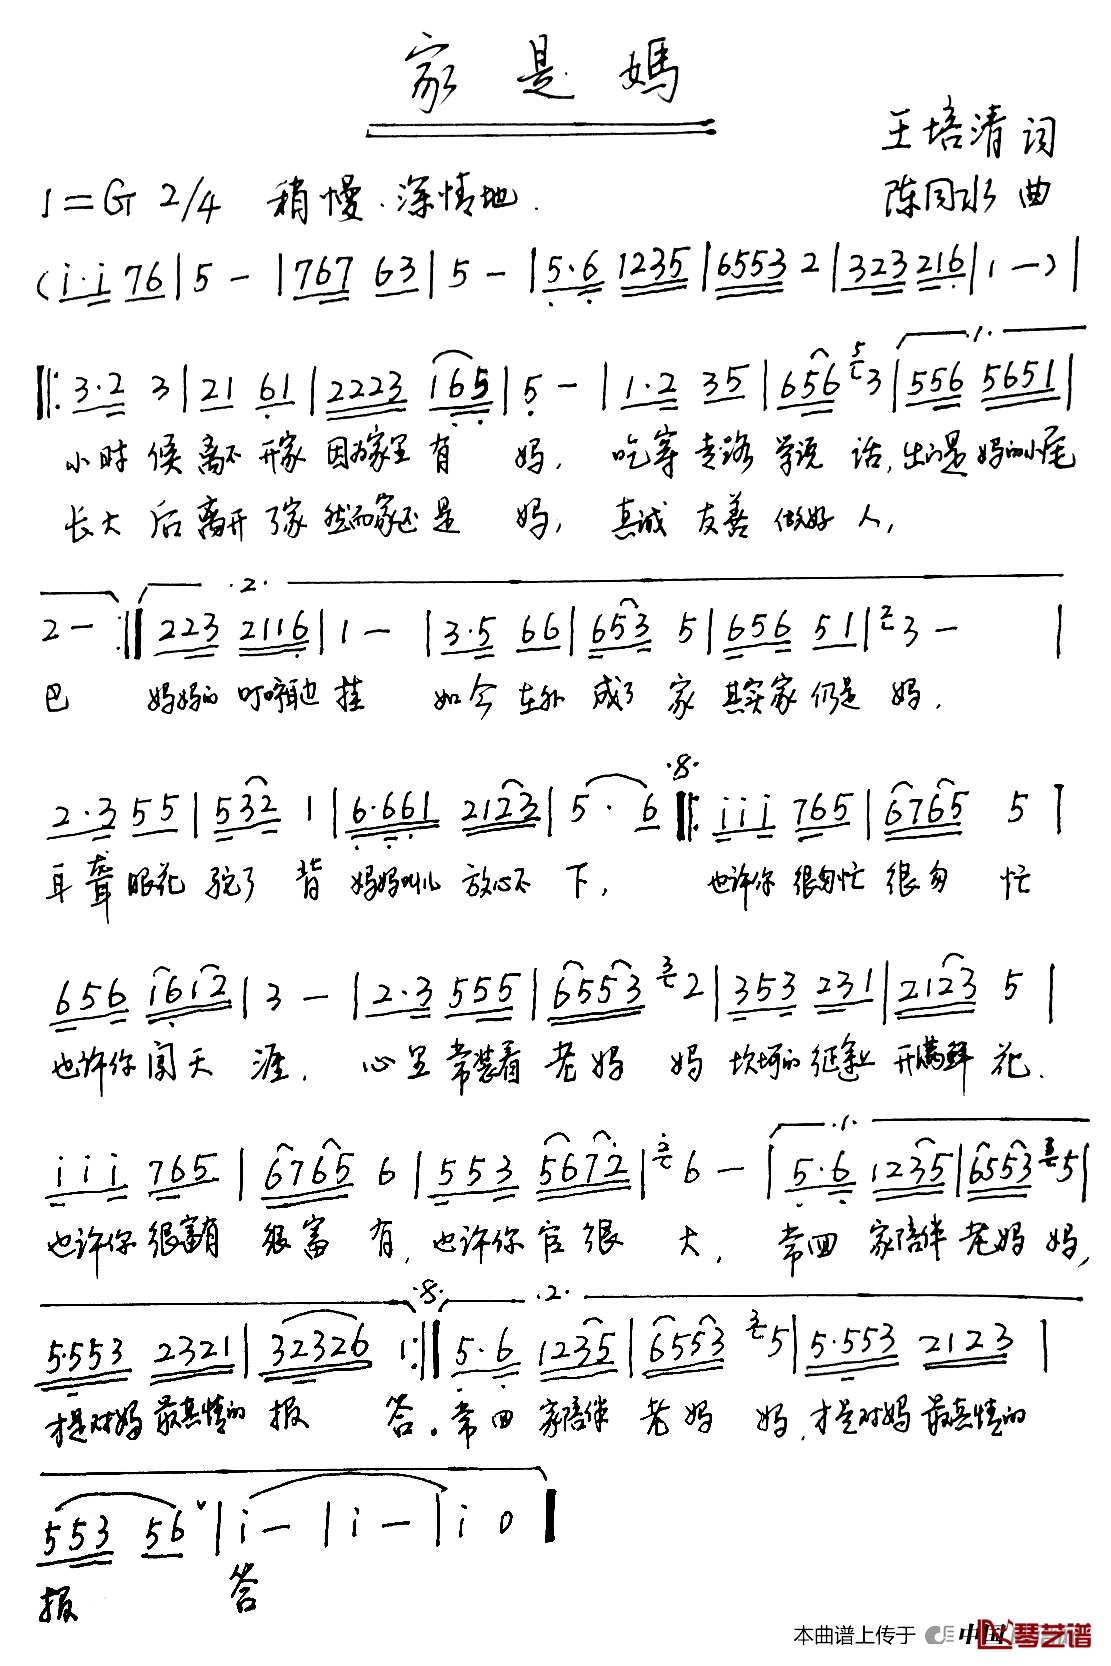 家是媽
王培清 词
1=G 2/4 稍慢.深情地.
陈同水 曲
(i·i 76|5 - |767 63|5 - |5·6 1235|6553 2|323 216|1 -)|
·1·
‖: 3·2 3|21 61|2223 165|5 - |1·2 35|656 5 3|556 5651|
小时 候 离不 开家 因为家里 有 妈, 吃穿 走路 学说 话, 出门是 妈的小尾
长大 后 离开 了家 然而家还 是 妈, 真诚 友善 做好 人,
·2·
2 - :‖ 223 2116|1 - |3·5 66|653 5|656 51|2 3 - |
巴 妈妈的 叮咛耳边 挂 如今 在外 成了 家 其实家 仍是 妈.
·8·
2·3 55|532 1|6·661 2123|5 · 6 ‖: iii 765|6765 5|
耳聋 眼花 驼了 背 妈妈叫儿 放心不 下, 也许你 很匆忙 很匆 忙
656 1612|3 - |2·3 555|6553 3 2|353 231|2123 5|
也许你 闯天 涯, 心里 常装着 老妈 妈 坎坷的 征途上 开满鲜 花.
·1·
iii 765|6765 6|553 5672|2 6 - |5·6 1235|6553 3 5|
也许你 很富有 很富 有, 也许你 官很 大, 常回 家陪伴 老妈 妈,
·8· ·2·
5·553 2321|32326 1:‖ 5·6 1235|6553 3 5|5·553 2123|
才是对妈 最真情的 报 答。常回 家陪伴 老妈 妈,才是对妈 最真情的
553 56 ∨|i - |i - |i 0‖
报 答
本曲谱上传于 中国 琴艺谱